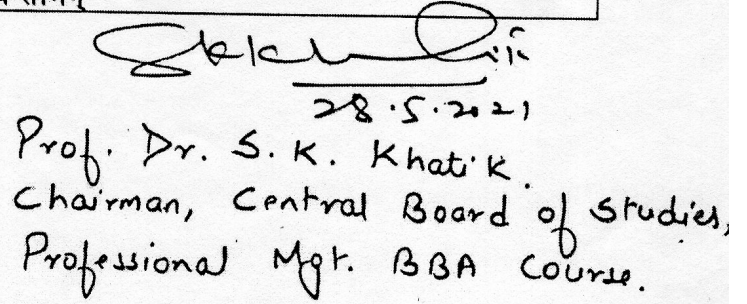 SKKhatik
28.5.2021
Prof. Dr. S. K. Khatik.
Chairman, Central Board of Studies,
Professional Mgt. BBA Course.